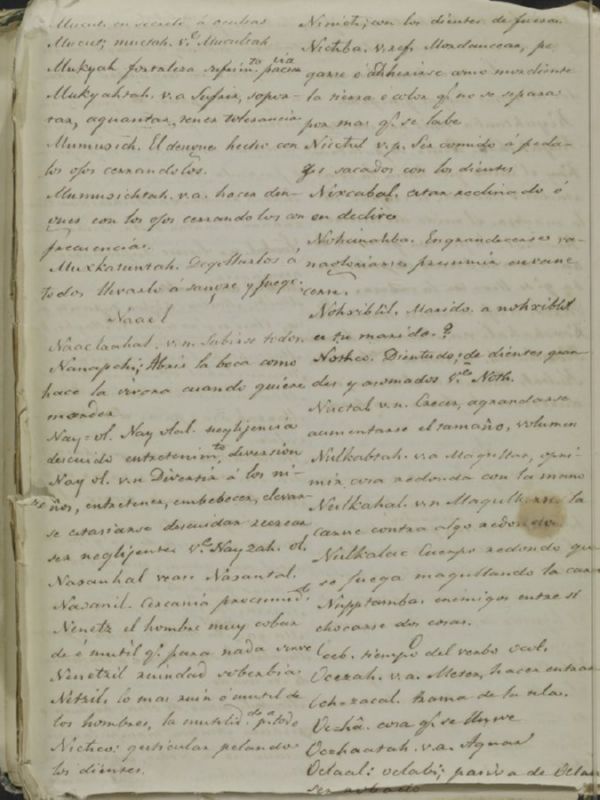 Mucut en secreto á ocultas
Mucut; muctah. v.e Mucultah
Mukyah fortaleza sufrim.to pacia
Mukyahtah. v.a Sufrir, sopor-
tar, aguantar, tener tolerancia
Mumusich. El dengue hecho con
los ojos cerrandolos.
Mumusichtah. v.a. hacer den-
gues con los ojos cerrandolos con
frecuencia.
Muxkatuntah. Degollarlos á
todos llevarlo a sangre y fuego.
Naacl
Naaclaahal. v.n. Subirse todos.
Nanapchi; Abrir la boca como
hace la vivora cuando quiere
morder
Nay-ol. Nay olal. negligencia
descuido entretenim.to diversion
Nay ol. v.n Divertir á los ni-
ños, entretener, embebecer, elevar-
se extasiarse descuidar recrear
ser negligente v.e Nayzah. ol.
Nazanhal vease Nazantal.
Nazanil. Cercanía proximid.d
Nenetz el hombre muy cobar
de é inutil q.e para nada sirve
Nenetzil ruindad soberbia
Netzil, lo mas ruin ó inutil de
los hombres, la inutilid.d p.a todo
Nichco: gesticular pelando
los dientes.
Ninich; con los dientes de fuera.
Nichba. v.refl Mordancear, pe
garse ó adherirse como mordiente
la tierra ó color q.e no se separa
por mas q.e se labe
Nichtul v.p. Ser comido á peda-
zos sacados con los dientes
Nixcabal. estar reclinado ó
en declive
Nohcinahba. Engrandecerse va-
nagloriarse presumir envane
cerse.
Nohxiblil. Marido. a nohxiblil
es tu marido.?
Nothco. Dientudo; de dientes gran
des y asomados v.e Noth.
Nuctal v.n. Crecer, agrandarse
aumentarse el tamaño, volumen
Nulkabtah. v.a Magullar, opri-
mir cosa redonda con la mano
Nulkahal. v.n Magullarse la
carne contra algo redondo.
Nulkalac Cuerpo redondo que
se juega magullando la carne
Nupptamba. enemigos entre sí
chocarse dos cosas.
Oceb. tiempo del verbo ocol.
Ocezah. v.a. Meter, hacer entrar
Ochzacal. trama de la tela.
Ochhá. cosa q.e se llueve
Ochaatah. v.a. Aguar
Oclaal: oclabi; pasiva de Oclah
ser robado